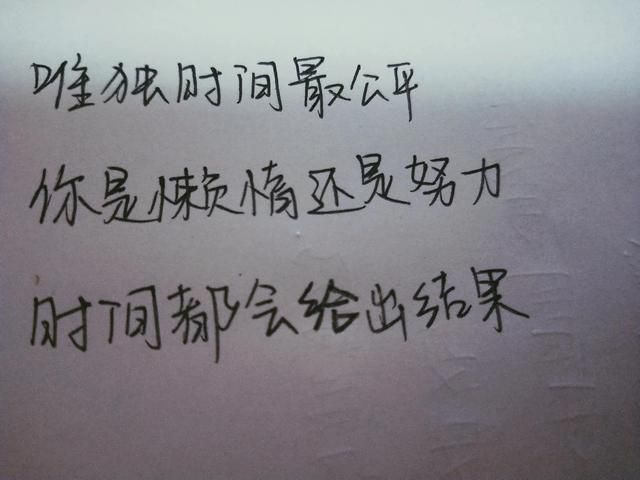 唯独时间最公平
你是懒惰还是努力
时间都会给出结果